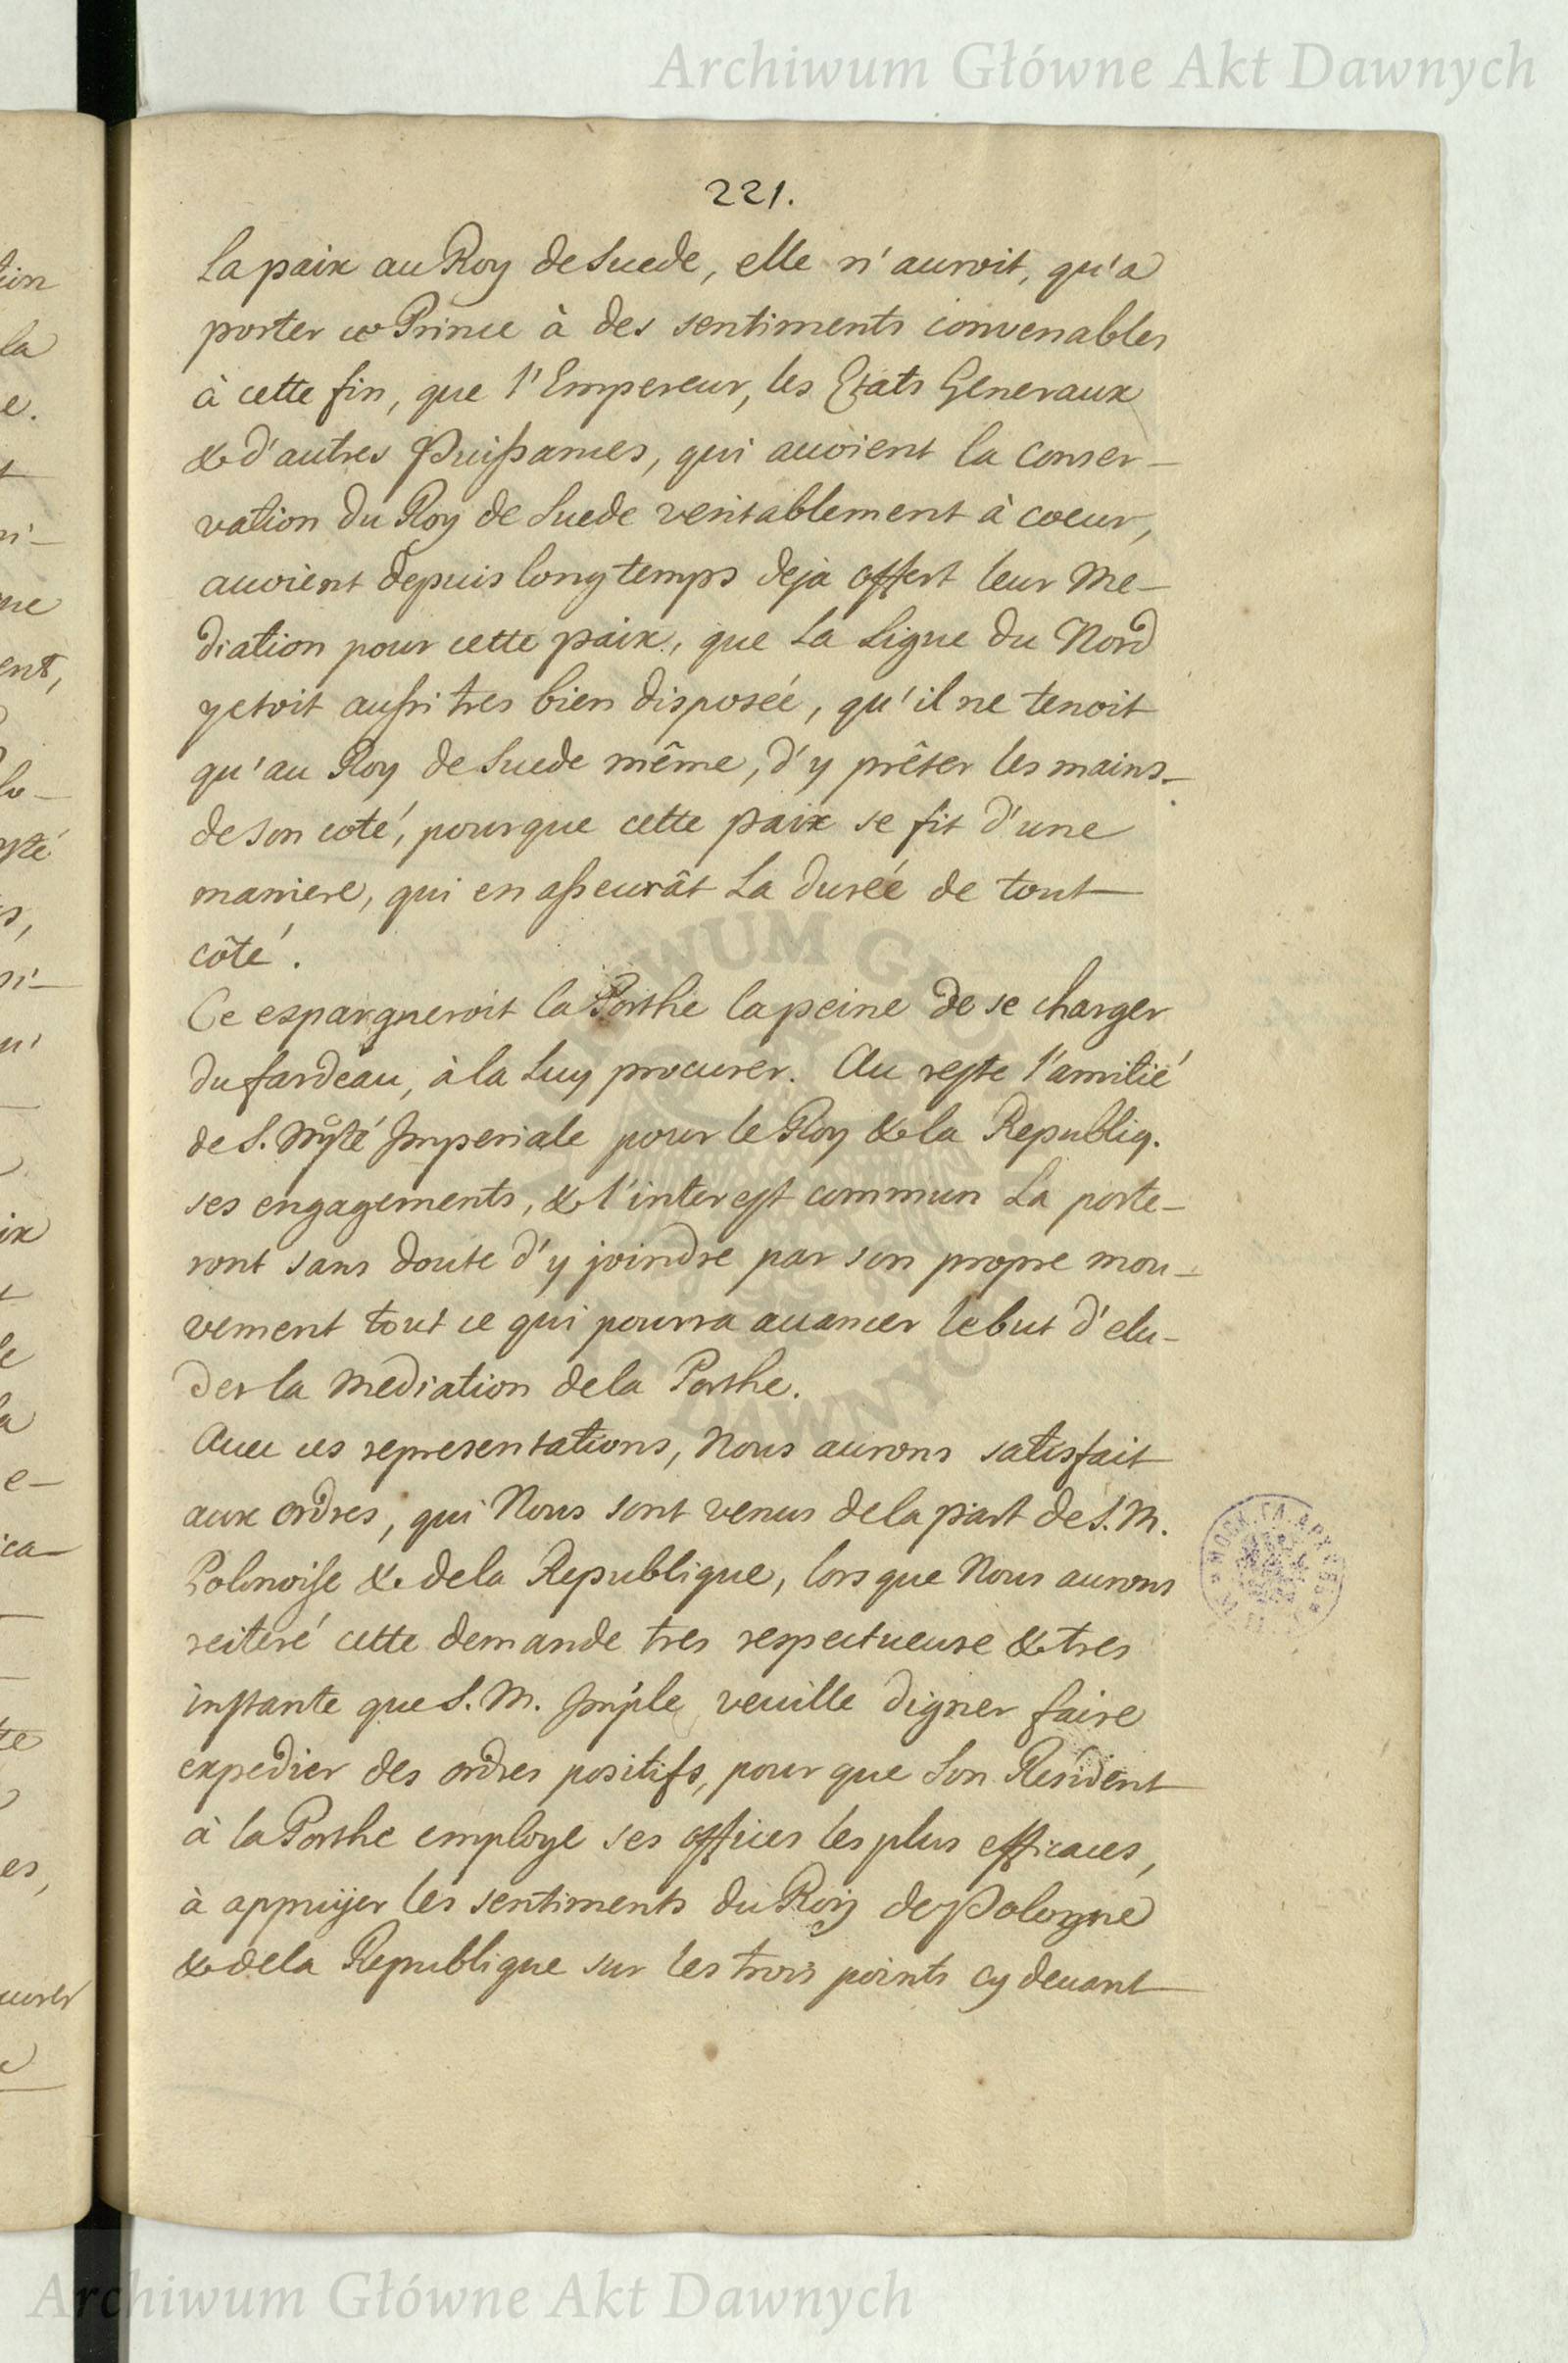 Archiwum Główne Akt Dawnych
221.
la paix au Roy de Suede, elle n'auroit, qu'a
porter ce Prince à des sentiments convenables
à cette fin, que l'Empereur, les Etats Generaux
& d'autres Puissances, qui avoient la conser-
vation du Roy de Suede veritablement à coeur,
avoient depuis long temps deja offert leur Me-
diation pour cette paix, que La Ligue du Nord
y etoit aussi tres bien disposée, qu'il ne tenoit
qu'au Roy de Suede même, d'y prêter les mains
de son coté, pour que cette paix se fit d'une
maniere, qui en asseurât La durée de tout
côté.
Ce espargneroit la Porthe la peine de se charger
du fardeau, à la Luy procurer. Au reste l'amitié
de S. Mjté Imperiale pour le Roy & la Republiq.
ses engagements, & l'interest commun La porte-
ront sans doute d'y joindre par son propre mou-
vement tout ce qui pourra avancer le but d'elu-
der la Mediation de la Porthe.
Avec ces representations, Nous aurons satisfait
aux ordres, qui Nous sont venus de la part de S. M.
Polonoise & de la Republique, lors que Nous aurons
reiteré cette demande tres respectueuse & tres
instante que S. M. Imple veuille digner faire
expedier des ordres positifs, pour que Son Resident
à la Porthe employe ses offices les plus efficaces,
à appuÿer les sentiments du Roy de Pologne
& de la Republique sur les trois points cy devant
Archiwum Główne Akt Dawnych